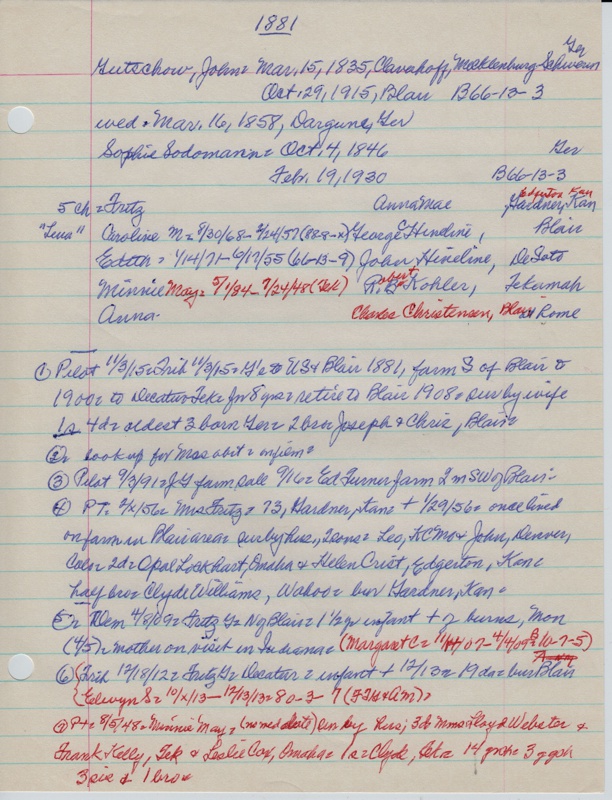 1881
Ger
Gutschow, John = Mar. 15, 1835, Clavahoff, Mecklenburg-Schwerin
Oct. 29, 1915, Blair B66-13-3
wed = Mar. 16, 1858, Dargune, Ger
Sophie Sodomann = Oct. 4, 1846 Ger
Feb. 19, 1930 B66-13-3
Edgerton Kan
5 ch = Fritz Anna Mae Gardner, Kan
"Lena" Caroline M = 8/30/68 - 2/24/57 (88-8-x) George E Hineline, Blair
Edith = 1/14/71 - 6/17/55 (66-13-9) John Hineline, DeSoto
Minnie May = 5/1/84 - 7/24/48 (Tek) Robert Kohler, Tekamah
Anna - Charles Christensen, Blair Rome
① Pilot 11/3/15 = Trib 11/3/15 = G's to US & Blair 1881, farm S of Blair to
1900 = to Decatur-Tek = for 8 yrs = retire to Blair 1908 = sur by wife
1s 4d = oldest 3 born Ger = 2 bro Joseph & Chris, Blair =
② look up for Mrs obit =
③ Pilot 9/3/91 = J G farm sale 9/16 = Ed Turner farm 2 m SW of Blair =
④ PT = 2/x/56 = Mrs Fritz = 73, Gardner, Kan + 1/29/56 = once lived
on farm in Blair area = sur by hus, 2 sons = Leo, KC Mo & John, Denver,
Colo = 2d = Opal Lockhart, Omaha & Helen Crist, Edgerton, Kan =
half bro = Clyde Williams, Wahoo = bur Gardner, Kan =
5 = Dem 4/8/09 = Fritz G = N of Blair = 1½ yr infant + of burns, Mon
(4/5) = mother on visit in Indiana = (Margaret C = 11/ /07 - 4/4/09 = 10-7-5)
6 (Trib 12/18/12 = Fritz G = Decatur = infant + 12/13 = 19 da = bur Blair
Edwyn S = 10/x/13 - 12/13/13 = 80-3-7 (F & AM) =
PT = 8/5/48 = Minnie May = (no wed date) sur by hus; 3d = Mmes Lloyd Webster &
Frank Kelly, Tek & Leslie Cox, Omaha = 1s = Clyde, 14 gch = 3 ggch
3 sis & 1 bro =